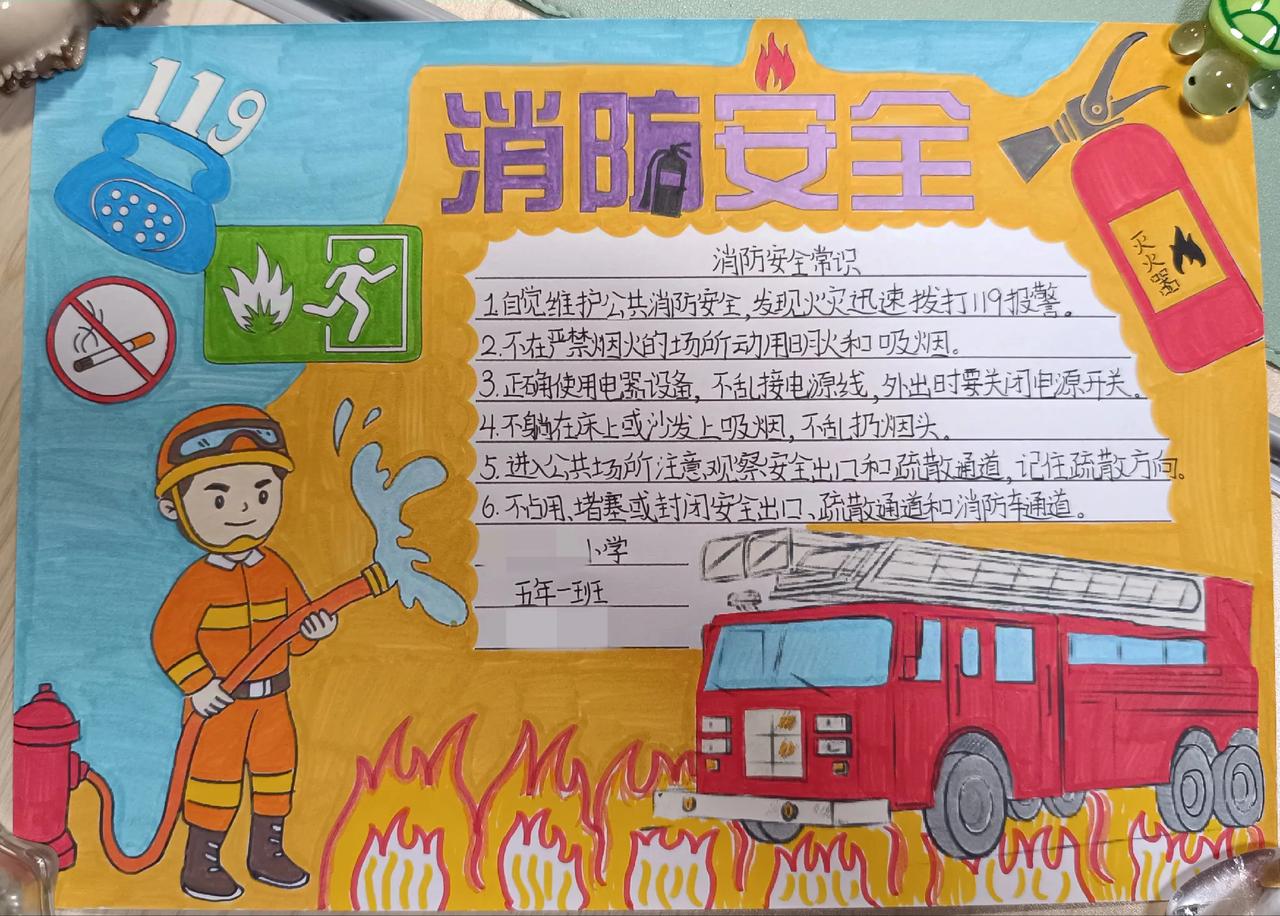 119
消防安全
灭火器
消防安全常识
1.自觉维护公共消防安全,发现火灾迅速拨打119报警。
2.不在严禁烟火的场所动用明火和吸烟。
3.正确使用电器设备,不乱接电源线,外出时要关闭电源开关。
4.不躺在床上或沙发上吸烟,不乱扔烟头。
5.进入公共场所注意观察安全出口和疏散通道,记住疏散方向。
6.不占用、堵塞或封闭安全出口、疏散通道和消防车通道。
小学
五年一班